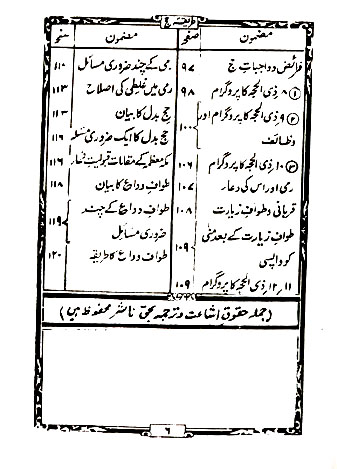 طریقۂ حج
مضمون صفحہ
فرائض و واجباتِ حج ۹۷
① ۸؍ذی الحجہ کا پروگرام ۹۸
② ۹؍ذی الحجہ کا پروگرام اور
وظائف ۱۰۰
③ ۱۰؍ذی الحجہ کا پروگرام ۱۰۶
رمی اور اس کی دعار ۱۰۷
قربانی و طوافِ زیارت ۱۰۸
طوافِ زیارت کے بعد منٰی
کو واپسی ۱۰۹
۱۱؍۱۲؍ذی الحجہ کا پروگرام ۱۰۹
مضمون صفحہ
رمی کے چند ضروری مسائل ۱۱۰
رمی میں غلطی کی اصلاح ۱۱۳
حج بدل کا بیان ۱۱۳
حج بدل کا ایک ضروری مسئلہ ۱۱۶
مکہ معظمہ کے مقامات قبولیت دعار ۱۱۶
طوافِ وداع کا بیان ۱۱۸
طوافِ وداع کے چند
ضروری مسائل ۱۱۹
طوافِ وداع کا طریقہ ۱۲۰
(جملہ حقوقِ اشاعت و ترجمہ بحق ناشر محفوظ ہیں)
۶